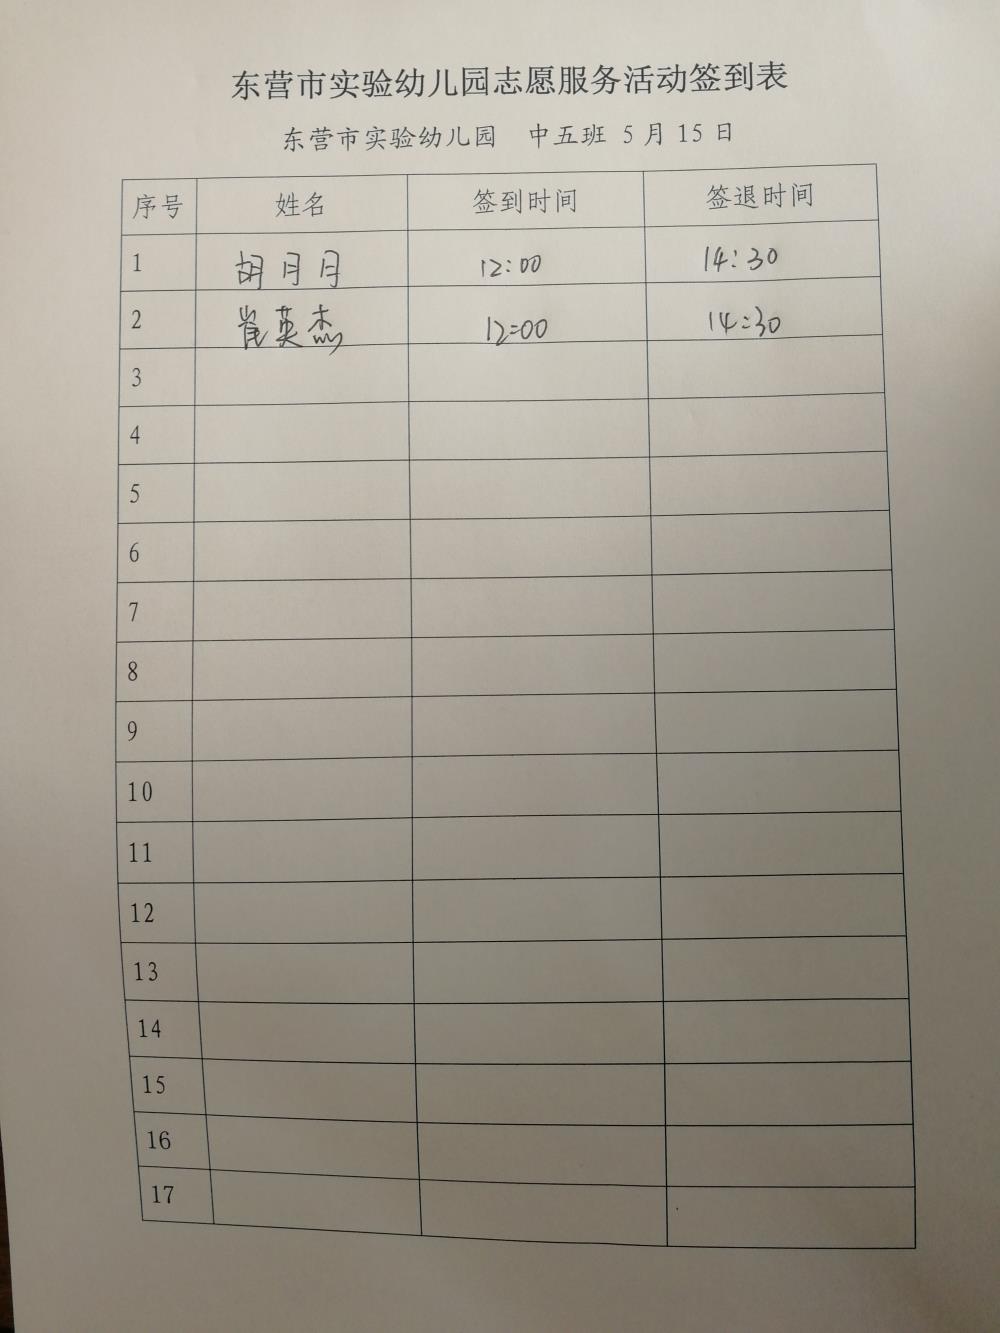 东营市实验幼儿园志愿服务活动签到表
东营市实验幼儿园 中五班 5月15日
序号 姓名 签到时间 签退时间
1 胡月月 12:00 14:30
2 崔英杰 12:00 14:30
3
4
5
6
7
8
9
10
11
12
13
14
15
16
17